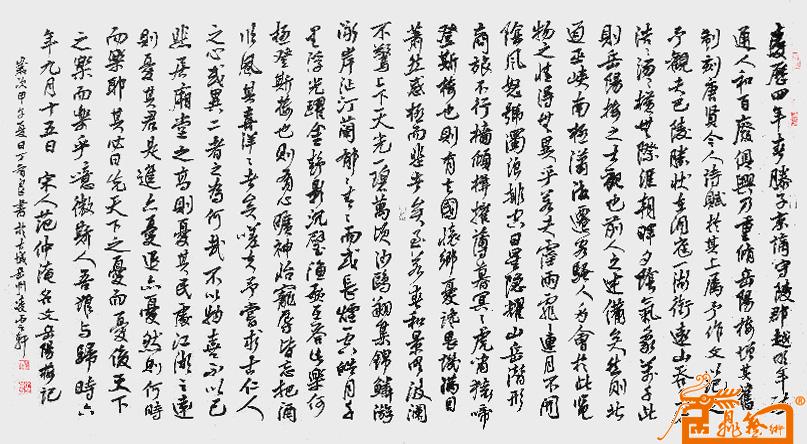 慶曆四年春滕子京謫守陵郡越明年政
通人和百廢俱興乃重修岳陽樓增其舊
制刻唐賢今人詩賦於其上屬予作文以記之
予觀夫巴陵勝狀在洞庭一湖銜遠山吞長江
浩浩湯湯橫無際涯朝暉夕陰氣象萬千此
則岳陽樓之大觀也前人之述備矣然則北
通巫峽南極瀟湘遷客騷人多會於此覽
物之情得無異乎若夫霪雨霏霏連月不開
陰風怒號濁浪排空日星隱耀山岳潛形
商旅不行檣傾楫摧薄暮冥冥虎嘯猿啼
登斯樓也則有去國懷鄉憂讒畏譏滿目
蕭然感極而悲者矣至若春和景明波瀾
不驚上下天光一碧萬頃沙鷗翔集錦鱗游
泳岸芷汀蘭郁郁青青而或長煙一空皓月千
里浮光躍金靜影沉璧漁歌互答此樂何
極登斯樓也則有心曠神怡寵辱皆忘把酒
臨風其喜洋洋者矣嗟夫予嘗求古仁人
之心或異二者之為何哉不以物喜不以己
悲居廟堂之高則憂其民處江湖之遠
則憂其君是進亦憂退亦憂然則何時
而樂耶其必曰先天下之憂而憂後天下
之樂而樂乎噫微斯人吾誰與歸時六
年九月十五日 宋人范仲淹名文岳陽樓記